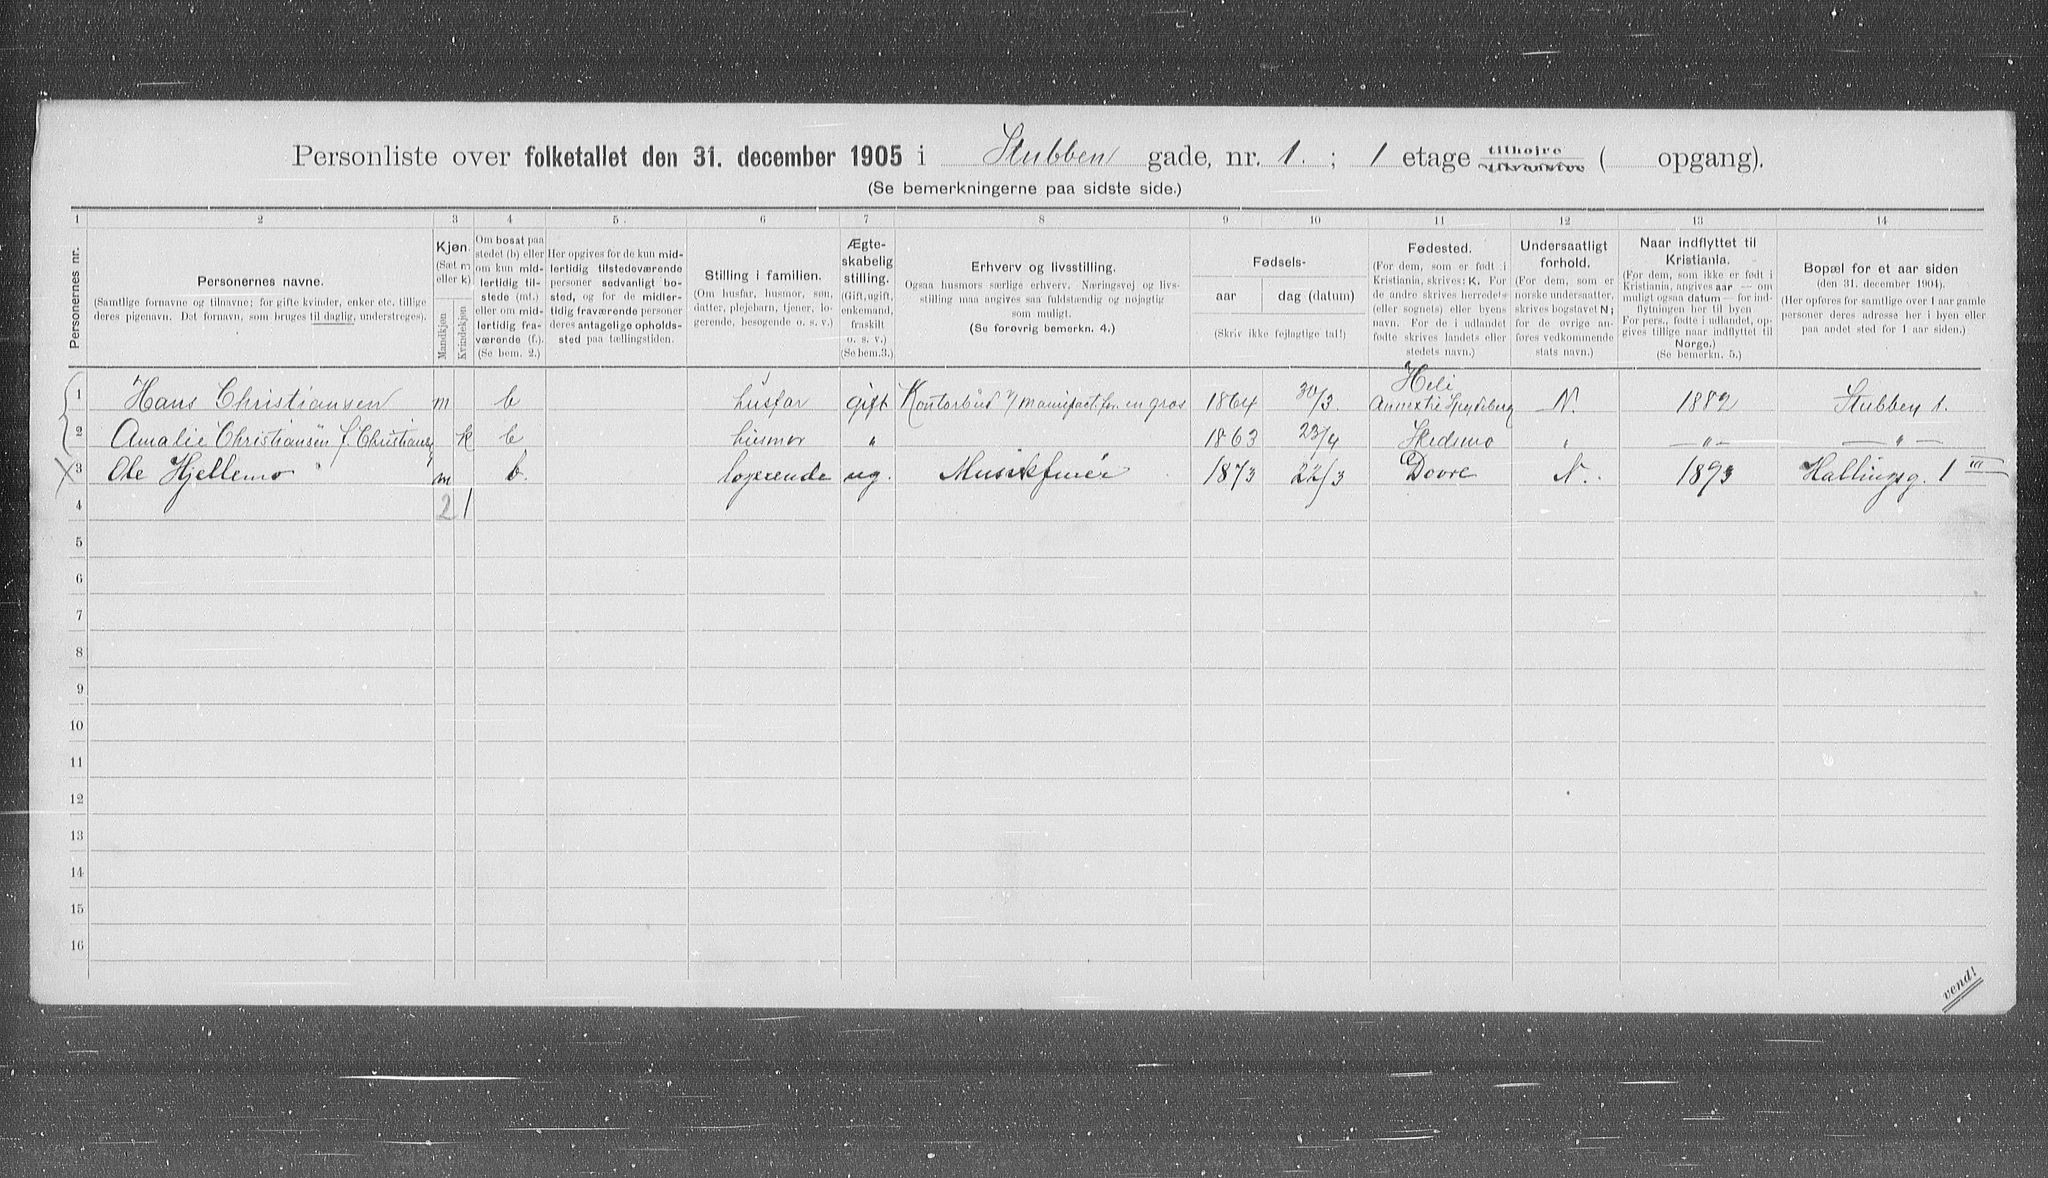 Personliste over folketallet den 31. december 1905 i Stubben gade, nr. 1. ; 1 etage tilhøjre tilvenstre ( opgang).
(Se bemerkningerne paa sidste side.)
1 2 3 4 5. 6 7 8 9 10 11 12 13 14
Personernes nr.
Personernes navne.
(Samtlige fornavne og tilnavne; for gifte kvinder, enker etc. tillige
deres pigenavn. Det fornavn, som bruges til daglig, understreges).
Kjøn.
(Sæt m
eller k).
Mandkjøn
Kvindekjøn
Om bosat paa
stedet (b) eller
om kun mid-
lertidig til-
stede (mt.)
eller om mid-
lertidig fra-
værende (f.).
(Se bem. 2.)
Her opgives for de kun mid-
lertidig tilstedeværende
personer sedvanligt bo-
sted, og for de midler-
tidig fraværende personer
deres antagelige opholds-
sted paa tællingstiden.
Stilling i familien.
(Om husfar, husmor, søn,
datter, plejebarn, tjener, lo-
gerende, besøgende o. s. v.)
Ægte-
skabelig
stilling.
(Gift, ugift,
enkemand,
fraskilt
o. s. v.)
(Se bem.3.)
Erhverv og livsstilling.
Ogsaa husmors særlige erhverv. Næringsvej og livs-
stilling maa angives saa fuldstændig og nøjagtig
som muligt.
(Se forøvrig bemerkn. 4.)
Fødsels-
aar dag (datum)
(Skriv ikke fejlagtige tal!)
Fødested.
(For dem, som er født i
Kristiania, skrives: K. For
de andre skrives herredets
(eller sognets) eller byens
navn. For de i udlandet
fødte skrives landets eller
stedets navn.)
Undersaatligt
forhold.
(For dem, som er
norske undersaatter,
skrives bogstavet N;
for de øvrige an-
føres vedkommende
stats navn.)
Naar indflyttet til
Kristiania.
(For dem, som ikke er født i
Kristiania, angives aar — om
muligt ogsaa datum — for ind-
flytningen her til byen
For pers., fødte i udlandet, op-
gives tillige naar indflyttet til
Norge.)
(Se bemerkn. 5.)
Bopæl for et aar siden
(den 31. december 1904).
(Her opføres for samtlige over 1 aar gamle
personer deres adresse her i byen eller
paa andet sted for 1 aar siden.)
1 Hans Christiansen m b husfar gift Kontorbud v/ manufact. for. en gros 1864 30/3. Heli Annextil Spydeberg N. 1882 Stubben 1.
2 Amalie Christiansen f. Christians k b husmor " 1863 23/4 Skedsmo " —"— —"—
X 3 Ole Hjellemo m b. logerende ug. Musikfurér 1873 22/3 Dovre N. 1893 Hallingsg. 1 III
4 2 1
5
6
7
8
9
10
11
12
13
14
15
16
vend!